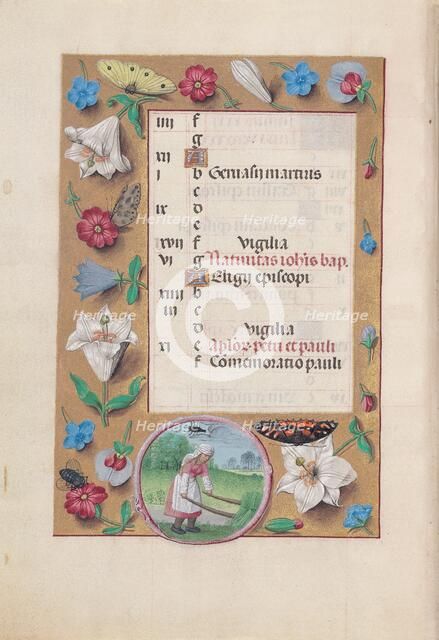 iiii f
g
xii A
i b Geruasij martirus
c
ix d
e
xvii f Vigilia
vi g Natiuitas iohis bap.
A Eligij episcopi
xiiii b
iii c
d Vigilia
xi e Aplor petri et pauli
f Comemoratio pauli
Heritage
Heritage
Heritage
Heritage
Heritage
Heritage